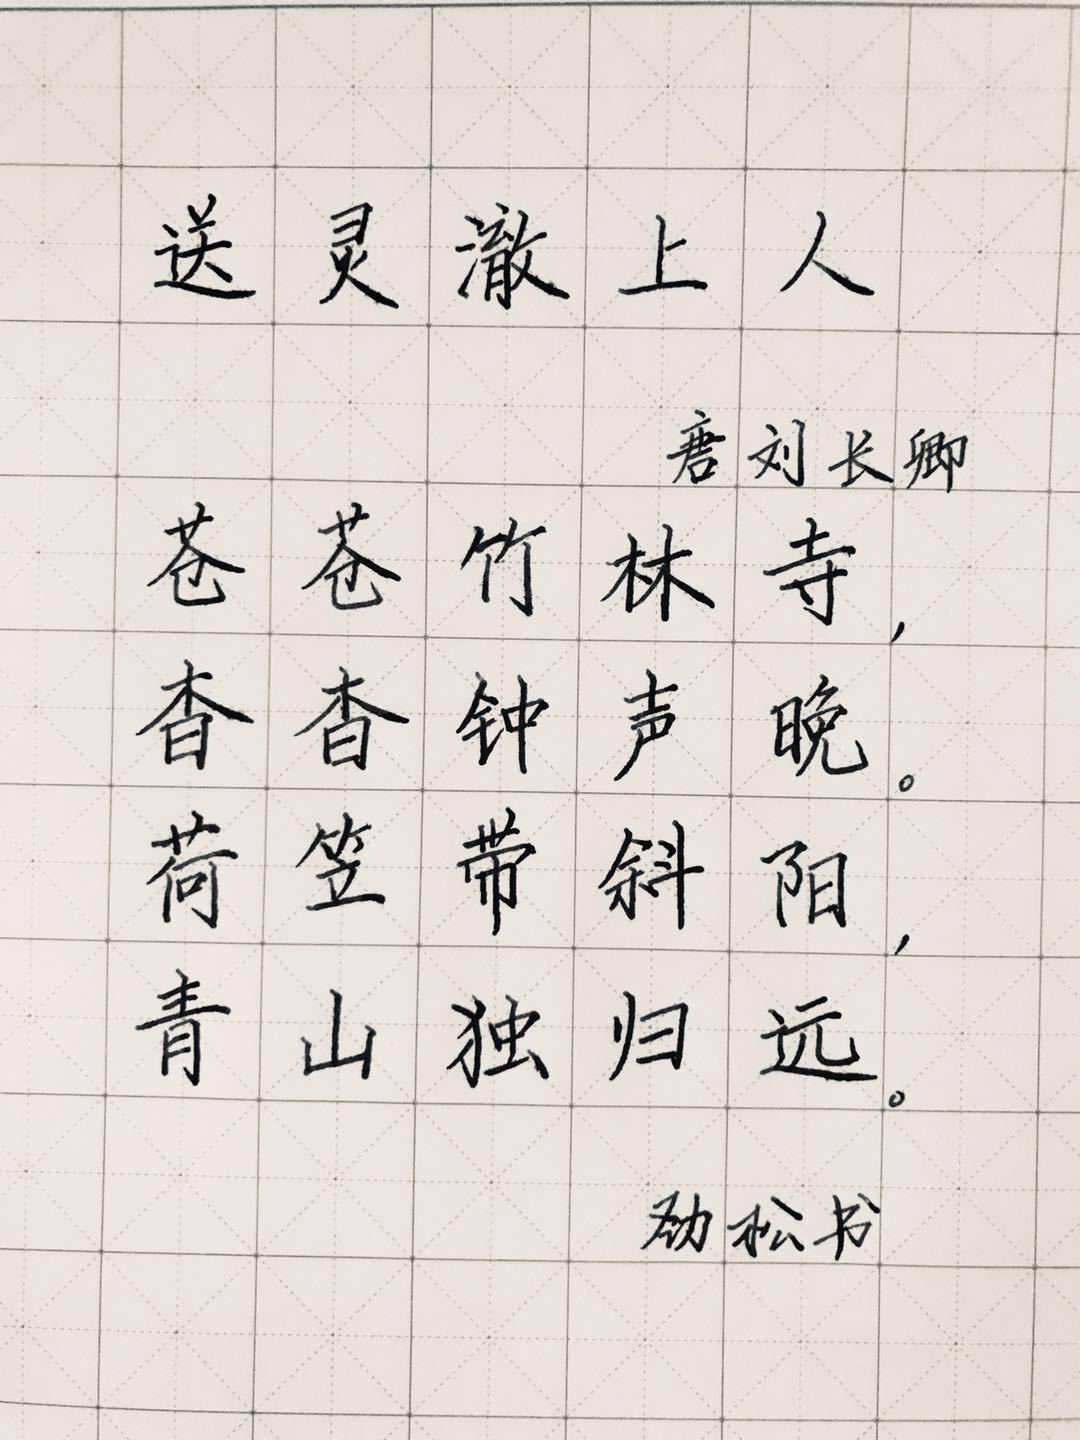 送灵澈上人
唐刘长卿
苍苍竹林寺，
杳杳钟声晚。
荷笠带斜阳，
青山独归远。
劲松书